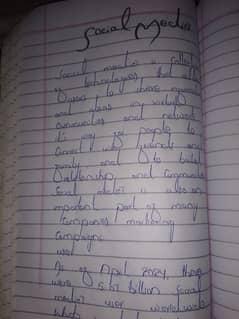 Social Media
Social media is a collect
of technologies that allow
Users to share
and ideas in virtual
communities and network
it's way for people to
connect with friends and
family and to build
Relationship, and Communit
Social media is also an
important part of many
Companies marketing
Campaigns
As of April 2024, there
were 5.07 billion Social
media user worldwide